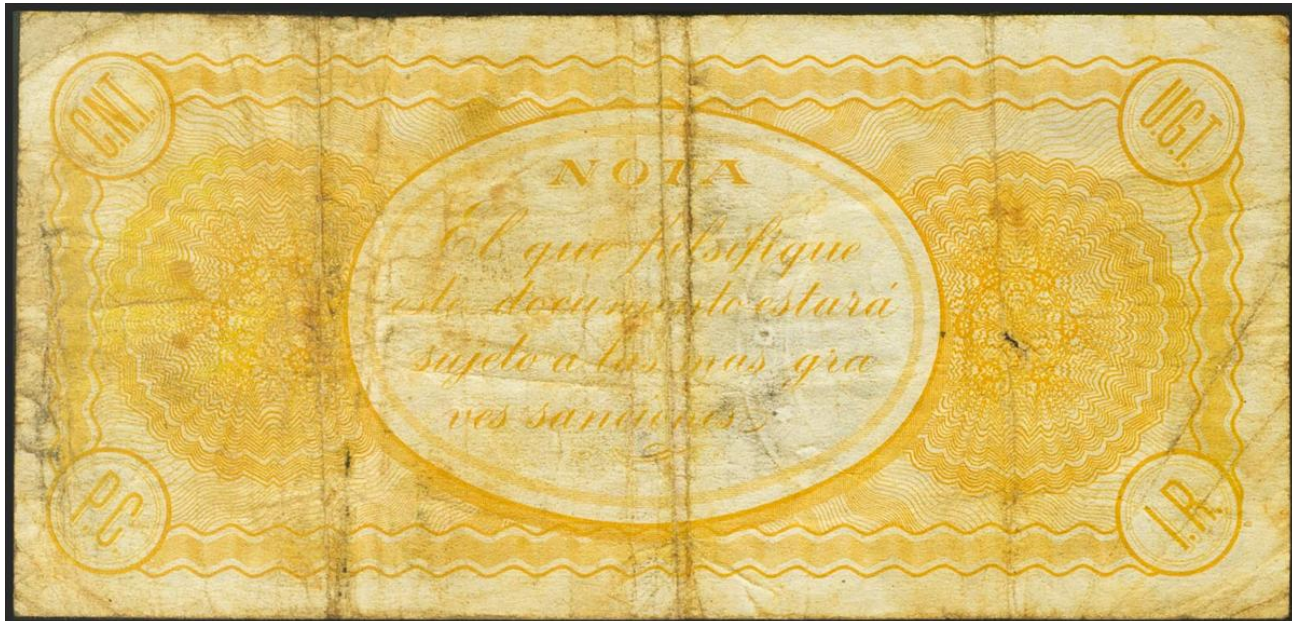 C.N.T.
U.G.T.
NOTA
El que falsifique
este documento estará
sujeto a las mas gra
ves sanciones.
P.C.
I.R.